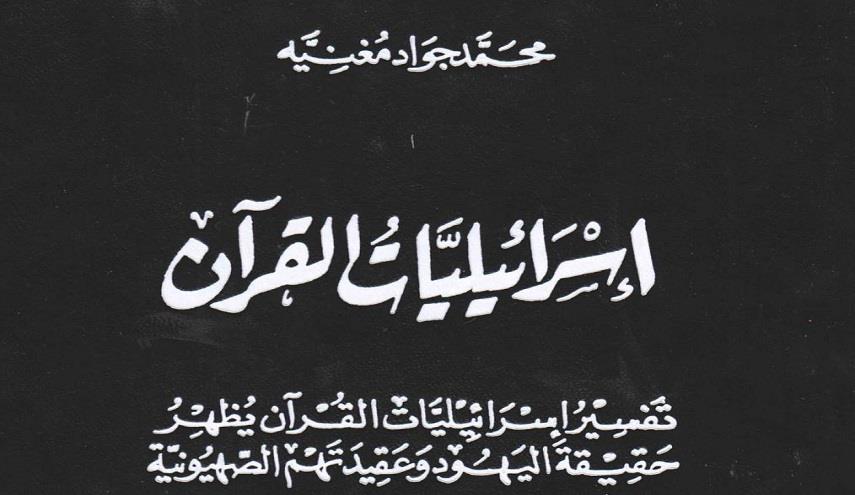 محمَّد جَوَاد مُغنِيَّه
إسْرَائيليَّاتُ القرآن
تَفسِيْرُ إسْرَائِيْليَّاتْ القُرآن يُظهِرُ
حَقِيقَةَ اليَهُود وَعَقِيدَتَهُم الصَّهيُونيَّة